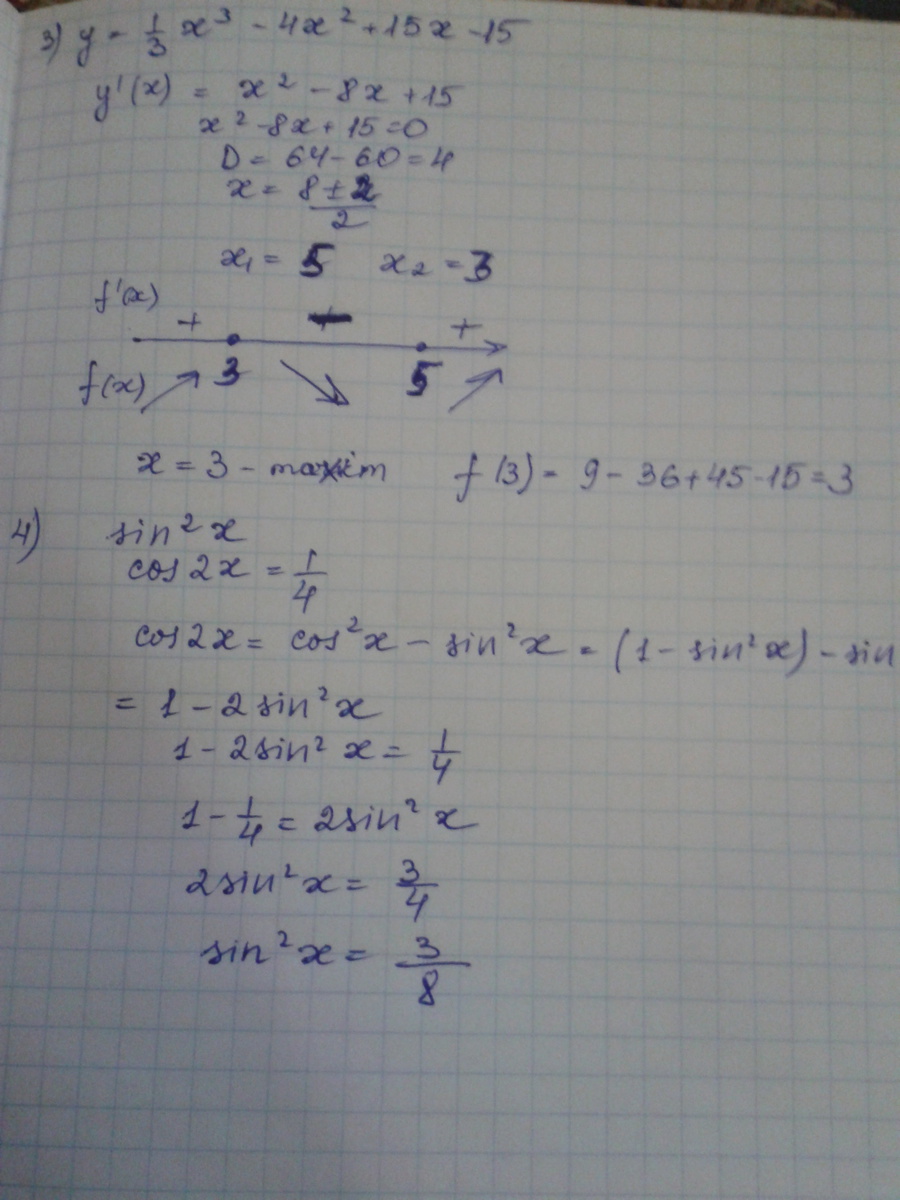 3) y = 1/3 x³ - 4x² + 15x - 15
y'(x) = x² - 8x + 15
x² - 8x + 15 = 0
D = 64 - 60 = 4
x = (8 ± 2)/2
x₁ = 5 x₂ = 3
f'(x) + - +
3 5
f(x)
x = 3 - maxim f(3) = 9 - 36 + 45 - 15 = 3
4) sin² x
cos 2x = 1/4
cos 2x = cos² x - sin² x = (1 - sin² x) - sin
= 1 - 2 sin² x
1 - 2 sin² x = 1/4
1 - 1/4 = 2 sin² x
2 sin² x = 3/4
sin² x = 3/8